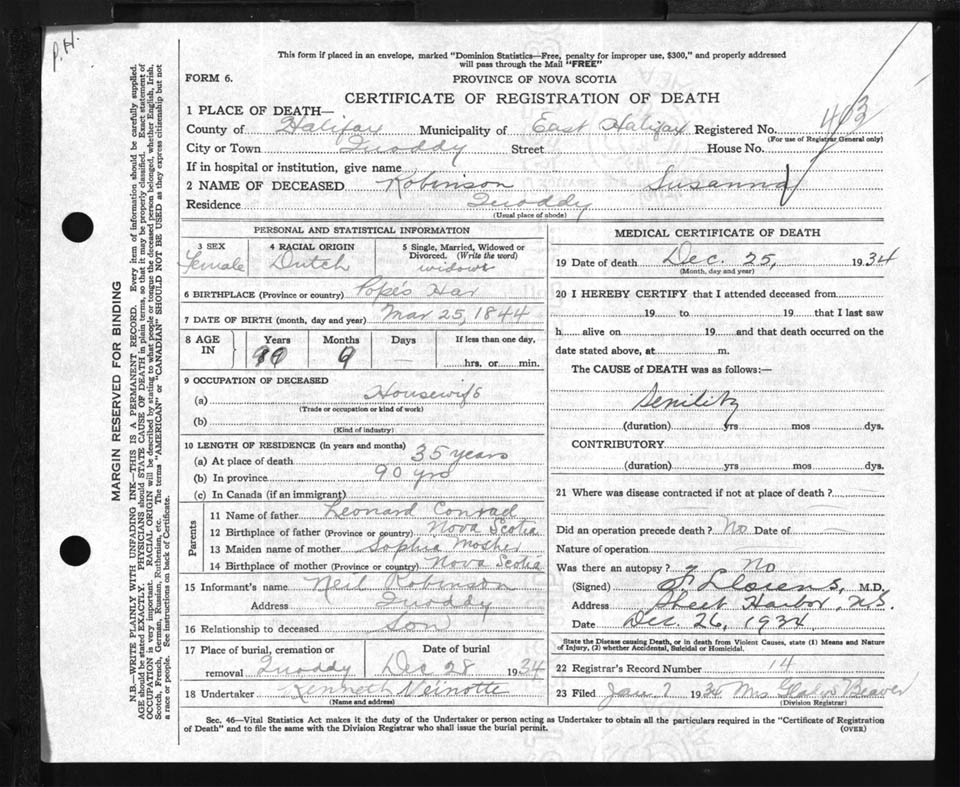 P.H.
This form if placed in an envelope, marked "Dominion Statistics—Free, penalty for improper use, $300," and properly addressed
will pass through the Mail "FREE"
FORM 6.
PROVINCE OF NOVA SCOTIA
CERTIFICATE OF REGISTRATION OF DEATH
1 PLACE OF DEATH—
County of Halifax Municipality of East Halifax Registered No. 413
(For use of Registrar General only)
City or Town Quoddy Street House No.
If in hospital or institution, give name
2 NAME OF DECEASED Robinson Susanna
Residence Quoddy
(Usual place of abode)
PERSONAL AND STATISTICAL INFORMATION
3 SEX 4 RACIAL ORIGIN 5 Single, Married, Widowed or
Divorced. (Write the word)
Female Dutch widow
6 BIRTHPLACE (Province or country) Popes Har
7 DATE OF BIRTH (month, day and year) Mar 25, 1844
8 AGE IN Years Months Days If less than one day,
90 9 — hrs. or min.
9 OCCUPATION OF DECEASED
(a) Housewife
(Trade or occupation or kind of work)
(b)
(Kind of industry)
10 LENGTH OF RESIDENCE (in years and months)
(a) At place of death 35 years
(b) In province 90 yrs
(c) In Canada (if an immigrant)
Parents
11 Name of father Leonard Conrad
12 Birthplace of father (Province or country) Nova Scotia
13 Maiden name of mother Sophia Mosher
14 Birthplace of mother (Province or country) Nova Scotia
15 Informant's name Neil Robinson
Address Quoddy
16 Relationship to deceased Son
17 Place of burial, cremation or Date of burial
removal Quoddy Dec 28 1934
18 Undertaker Kenneth
(Name and address)
MEDICAL CERTIFICATE OF DEATH
19 Date of death Dec. 25, 1934
(Month, day and year)
20 I HEREBY CERTIFY that I attended deceased from
19 to 19 that I last saw
h alive on 19 and that death occurred on the
date stated above, at m.
The CAUSE of DEATH was as follows:—
Senility
(duration) yrs mos dys.
CONTRIBUTORY
(duration) yrs mos dys.
21 Where was disease contracted if not at place of death?
Did an operation precede death? No Date of
Nature of operation
Was there an autopsy? No
(Signed) M.D.
Address Sheet Harbor, N.S.
Date Dec. 26, 1934
State the Disease causing Death, or in death from Violent Causes, state (1) Means and Nature
of Injury, (2) whether Accidental, Suicidal or Homicidal.
22 Registrar's Record Number 14
23 Filed Jan 7 1934 Mrs Beaver
(Division Registrar)
Sec. 46—Vital Statistics Act makes it the duty of the Undertaker or person acting as Undertaker to obtain all the particulars required in the "Certificate of Registration
of Death" and to file the same with the Division Registrar who shall issue the burial permit. (OVER)
MARGIN RESERVED FOR BINDING
N.B.—WRITE PLAINLY WITH UNFADING INK—THIS IS A PERMANENT RECORD. Every item of information should be carefully supplied.
AGE should be stated EXACTLY. PHYSICIANS should STATE CAUSE OF DEATH in plain terms, so that it may be properly classified. Exact statement of
OCCUPATION is very important. RACIAL ORIGIN will be described by stating to what people or tongue the deceased person belonged, whether English, Irish,
Scotch, French, German, Russian, Ruthenian, etc. The terms "AMERICAN" or "CANADIAN" SHOULD NOT BE USED as they express citizenship but not
a race or people. See instructions on back of Certificate.